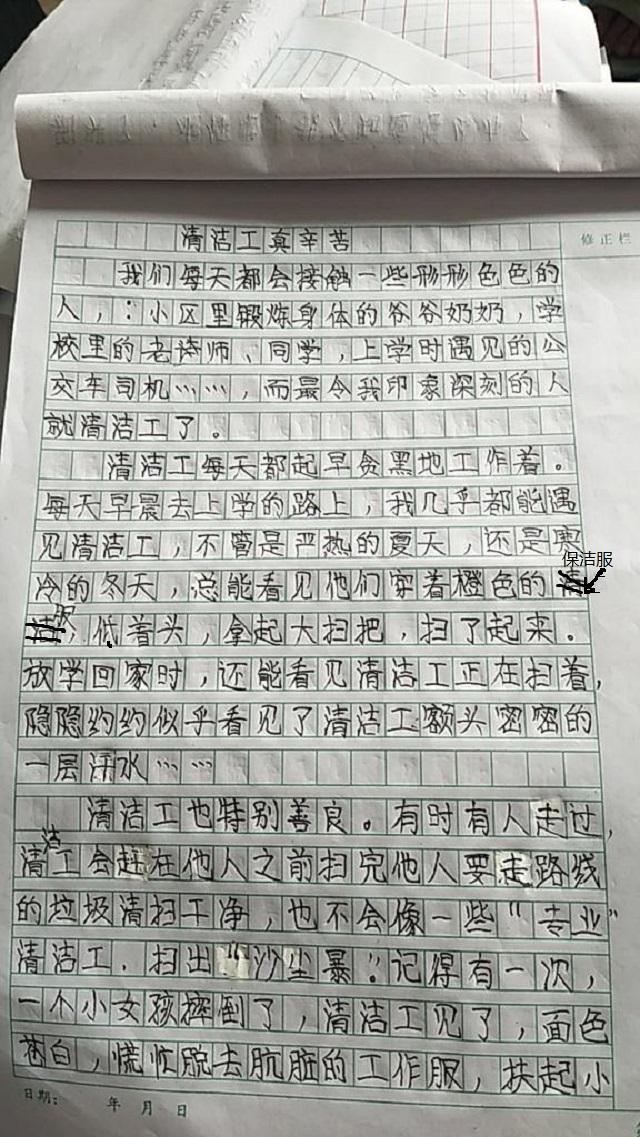 清洁工真辛苦
修正栏
我们每天都会接触一些形形色色的
人,:小区里锻炼身体的爷爷奶奶,学
校里的老师、同学,上学时遇见的公
交车司机……,而最令我印象深刻的人
就清洁工了。
清洁工每天都起早贪黑地工作着。
每天早晨去上学的路上,我几乎都能遇
见清洁工,不管是严热的夏天,还是寒
保洁服
冷的冬天,总能看见他们穿着橙色的
服,低着头,拿起大扫把,扫了起来。
放学回家时,还能看见清洁工正在扫着,
隐隐约约似乎看见了清洁工额头密密的
一层汗水……
清洁工也特别善良。有时有人走过,
清洁工会赶在他人之前扫完他人要走路线
的垃圾清扫干净,也不会像一些“专业”
清洁工.扫出“沙尘暴”。记得有一次,
一个小女孩摔倒了,清洁工见了,面色
苍白,慌忙脱去肮脏的工作服,扶起小
日期: 年 月 日